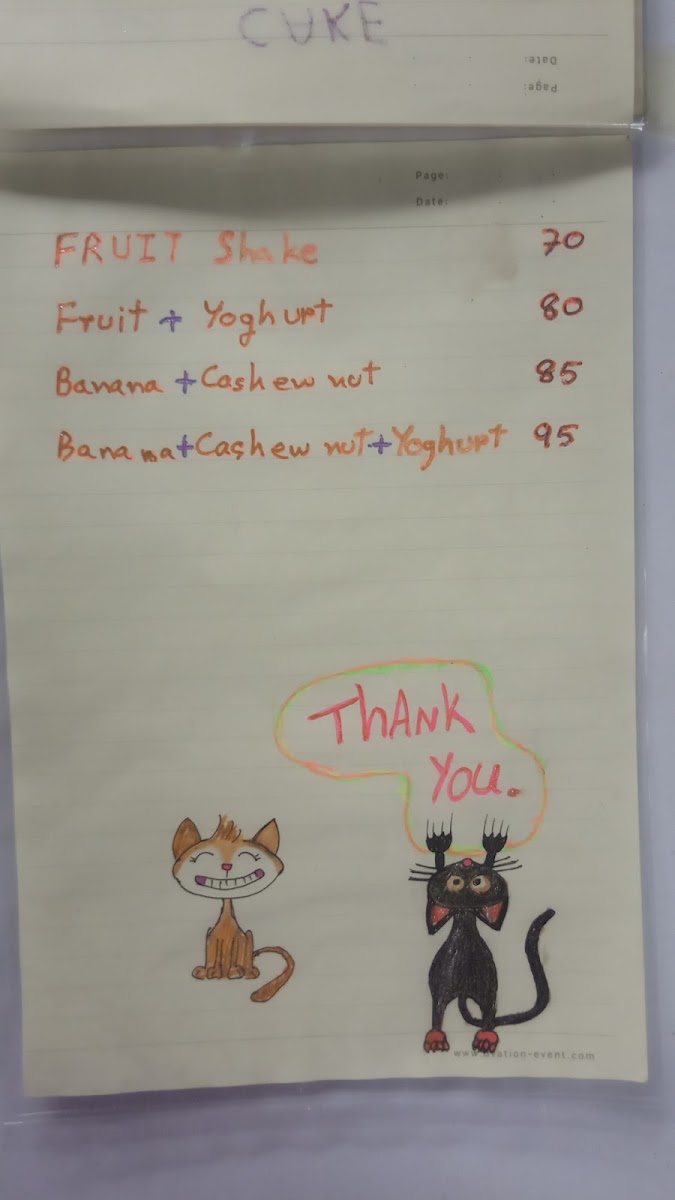 CAKE
Date:
Page:
Page:
Date:
FRUIT Shake 70
Fruit + Yoghurt 80
Banana + Cashew nut 85
Banana + Cashew nut + Yoghurt 95
THANK
YOU.
www.ovation-event.com